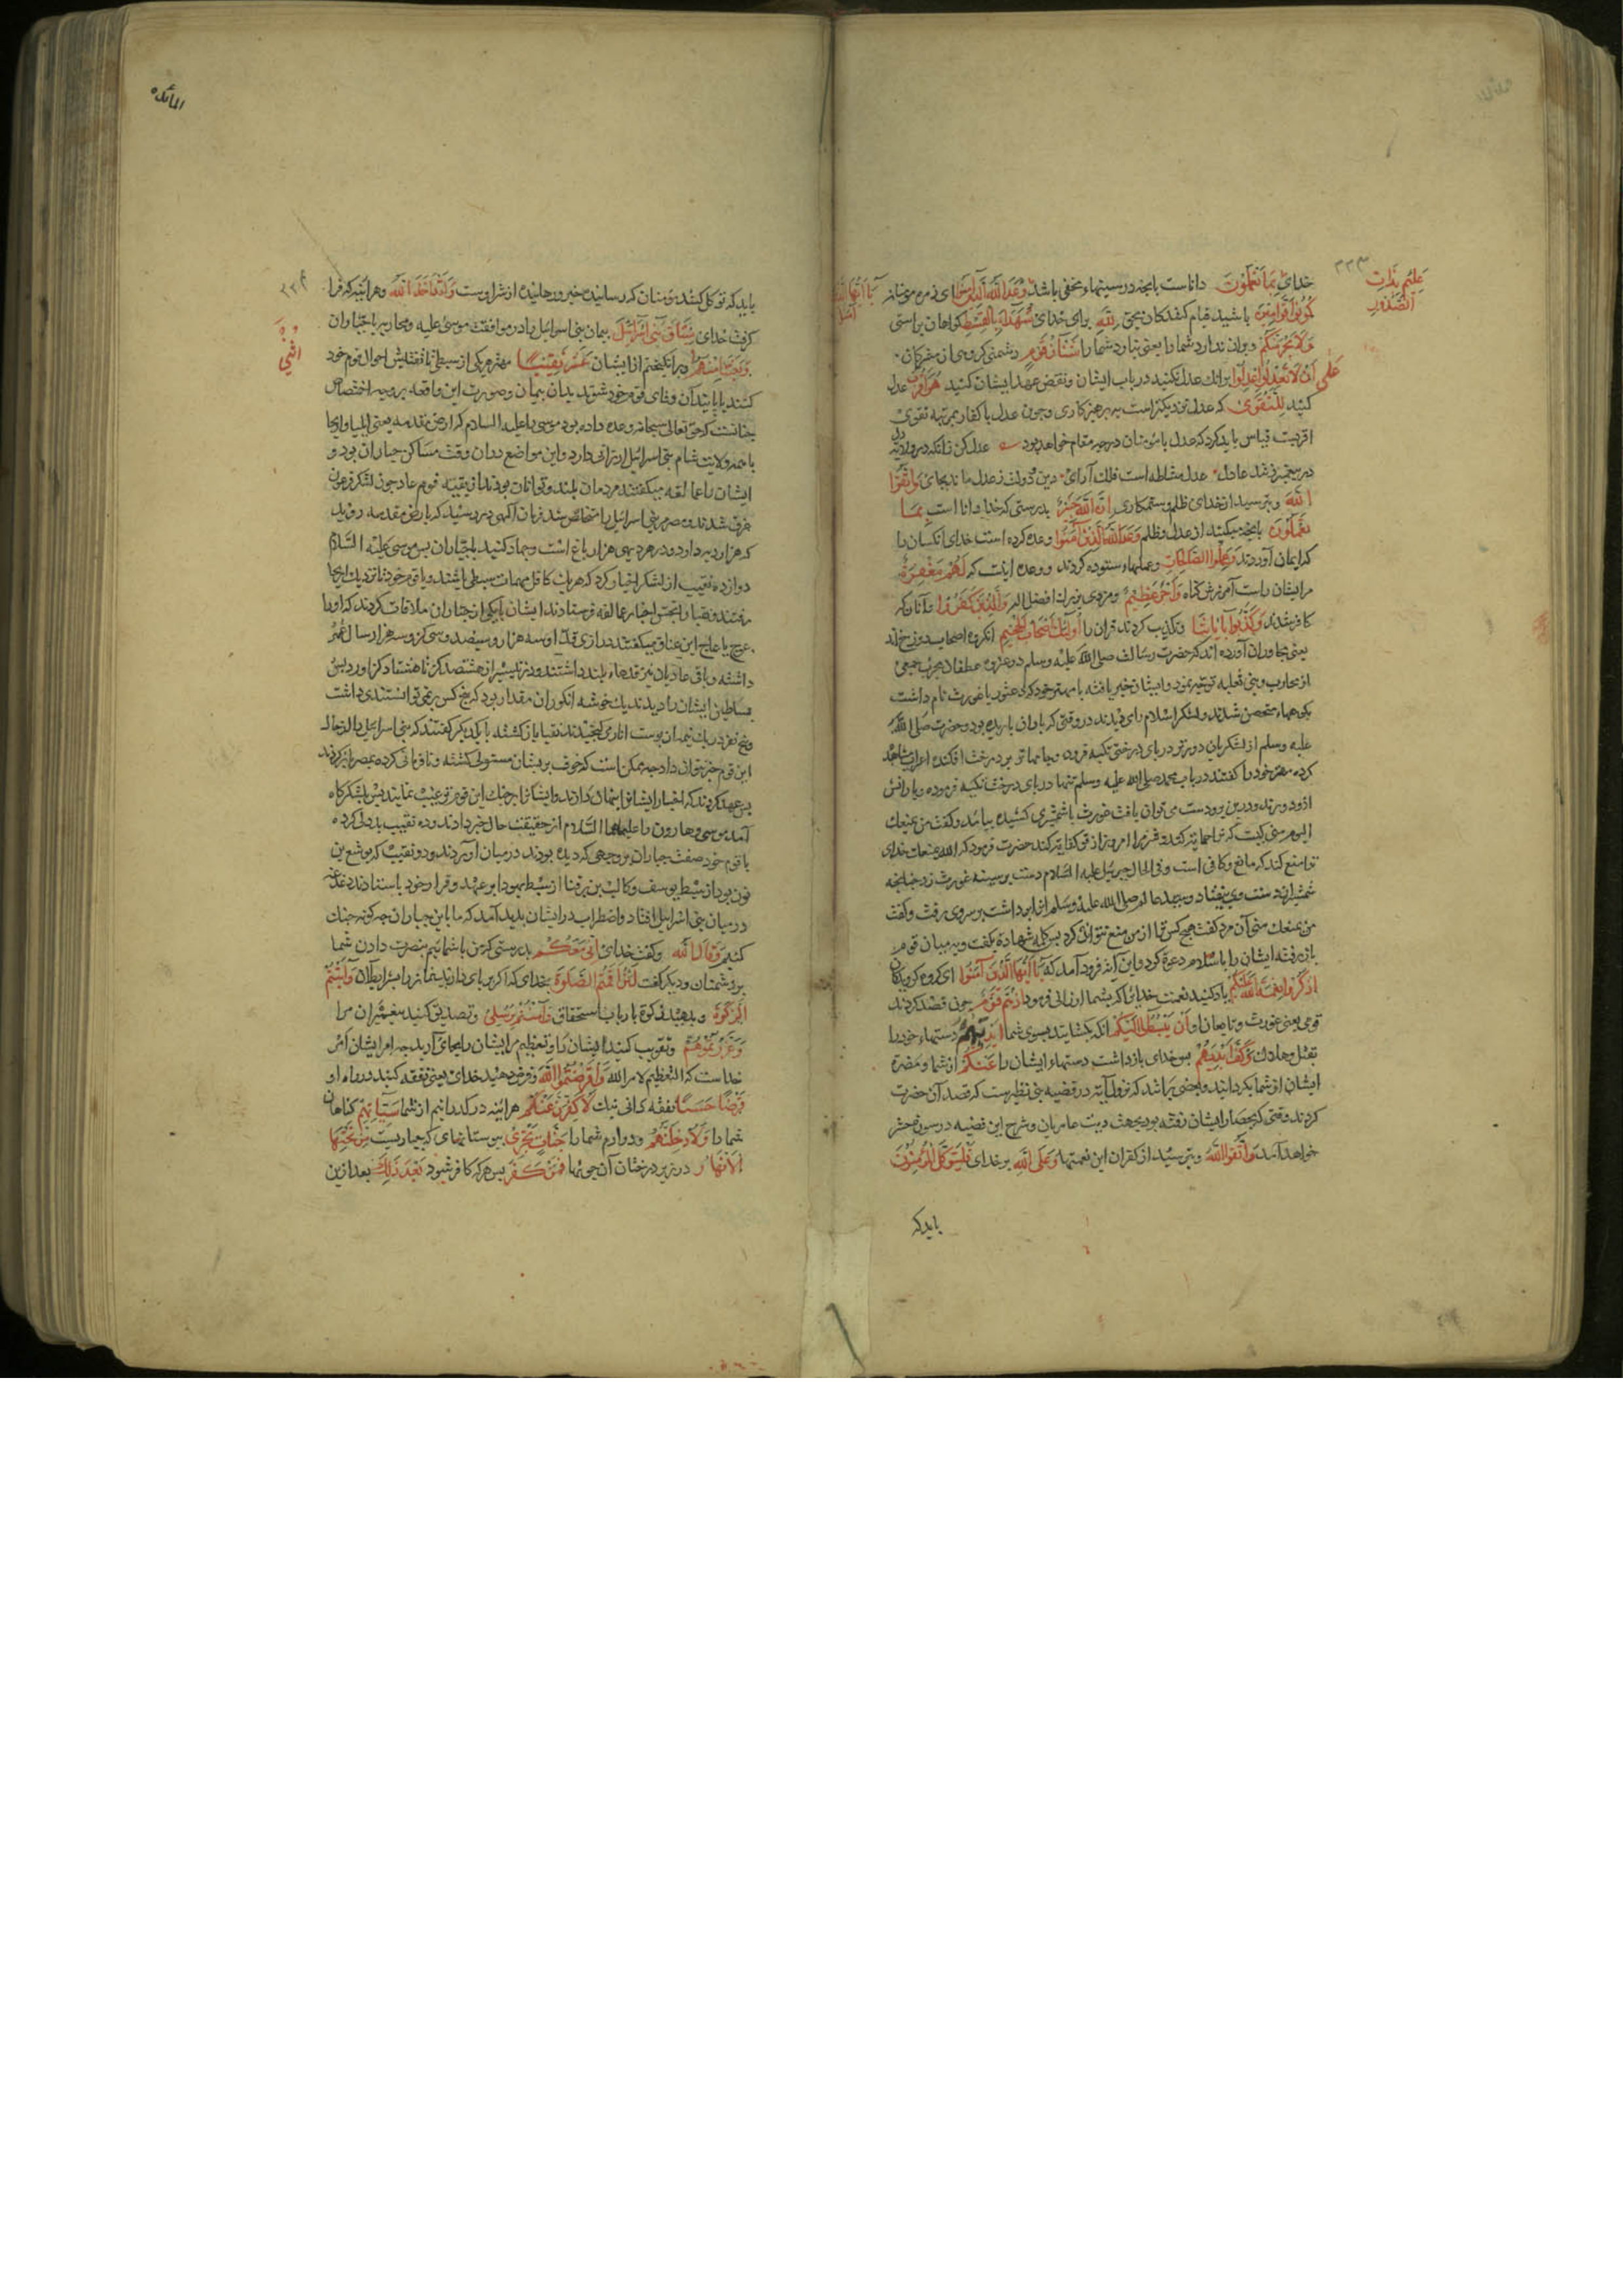 ٣٣٣
علیم بذات
الصدور
خدای بما تعملون داناست بانچه در سینهاء مخفی باشد ای زمره مومنانرا یا ایها الذین
آمنوا
کونوا قوامین باشید قیام کنندکان بحق لله برای خدای شهداء بالقسط کواهان براستی
ولا یجرمنکم وبران ندارد شما را یعنی نیارد شما را شنان قوم دشمنی کروهی از مشرکان
علی ان لا تعدلوا اعدلوا برانک عدل نکنید در باب ایشان ونقض عهد ایشان کنید هو اقرب عدل
کنید للتقوی که عدل نزدیکتر است به پرهیزکاری وچون عدل با کفار بمرتبه تقوی
اقربست قیاس باید کرد که عدل با مومنان در چه مقام خواهد بود عدل کن زانکه در ولایت دل
در پیغمبری زند عادل عدل مشاطه است ملک آرای واتقوا
الله وبترسید از خدای ظلم وستمکاری ان الله خبیر بدرستی که خدا دانا است بما
تعملون بانچه میکنید از عدل وظلم وعد الله الذین آمنوا وعده کرده است خدای آنکسان را
که ایمان آوردند وعملوا الصالحات وعملهاء ستوده کردند ووعده اینست که لهم مغفرة
مر ایشان راست آمرزش کناه واجر عظیم ومزدی بزرک والذین کفروا وآنان که
کافر شدند وکذبوا بآیاتنا وتکذیب کردند قرآن را اولئک اصحاب الجحیم آنکروه اصحاب دوزخ اند
یعنی آورده اند که حضرت رسالت صلی الله علیه وسلم در غزوه غطفان بحرب جمعی
از محارب وبنی ثعلبه توجه نمود وایشان خبر یافته با مهتر خود که دعثور یا غورث نام داشت
بکوهها متحصن شدند ولشکر اسلام در وقتی که باران باریده بود وحضرت صلی الله
علیه وسلم از لشکریان دورتر در پای درختی تکیه فرموده وجامها تر بر درخت افکنده اعراب مشاهده
کرده مهتر خود را کفتند در باب محمد صلی الله علیه وسلم تنها در پای درخت تکیه فرموده ویارانش
ازو دورند غورث با شمشیری کشیده بیامد وکفت من یمنعک
الیوم منی کیست که ترا حمایت کند وشر مرا امروز از تو کفایت کند حضرت فرمود که الله یمنعک خدای
ترا منع کند که مانع وکافی است وفی الحال جبرئیل علیه السلام دست بر سینه غورث زد چنانچه
شمشیر از دست وی بیفتاد وسید عالم صلی الله علیه وسلم آنرا برداشت وبر سر وی رفت وکفت
من یمنعک منی آن مرد کفت هیچ کس ترا از من منع نتواند کرد پس کلمه شهادة بکفت وبمیان قوم
باز رفته ایشان را باسلام دعوة کرد واین آیه فرود آمد که یا ایها الذین آمنوا ای کروه کرویدکان
اذکروا نعمة الله علیکم یاد کنید نعمت خدای را که بشما ارزانی فرمود اذ هم قوم چون قصد کردند
قومی یعنی غورث وتابعان او ان یبسطوا الیکم آنکه بکشایند بسوی شما ایدیهم دستهاء خود را
بقتل وهلاک فکف ایدیهم پس خدای باز داشت دستهاء ایشان را عنکم از شما ومضرة
ایشان از شما بکردانید وبعضی برآنند که نزول آیة در قضیه بنی نظیرست که قصد آن حضرت
کردند وقتی که بحصار ایشان رفته بود بجهت دیت عامریان وشرح این قضیه در سوره حشر
خواهد آمد واتقوا الله وبترسید از کفران این نعمتها وعلی الله بر خدای فلیتوکل المؤمنون
باید که
المائده
٣٣٤
باید که توکل کنند مومنان که رساننده خیر ورهاننده از شر اوست ولقد اخذ الله وهر آینه که فرا
کرفت خدای میثاق بنی اسرائیل پیمان بنی اسرائیل را در موافقت موسی علیه ومحاربه با جباران
وبعثنا منهم وبرانکیختیم از ایشان اثنی عشر نقیبا مهتر هر یکی از سبطی تا تفتیش احوال قوم خود
کنند وصورت این واقعه بر وجه اختصار
چنانست که حق تعالی سبحانه وعده داده بود موسی را علیه السلام که ارض مقدسه یعنی ایلیا واریحا
با همه ولایت شام بنی اسرائیل ارزانی دارد واین مواضع در آن وقت مساکن جباران بود و
ایشان را عمالقه میکفتند مردمان بلند وتوانا بودند از بقیه قوم عاد چون لشکر فرعون
غرق شدند ومصر بنی اسرائیل را متخلص شد فرمان الهی در رسید که بارض مقدسه روید
که هزار دیه دارد ودر هر دیهی هزار باغ است وجهاد کنید با جباران پس موسی علیه السلام
دوازده نقیب از لشکر اختیار کرد که هر یک کافل مهمات سبطی باشند وبا قوم خود تا نزدیک اریحا
رفتند ونقبا را بتجسس اخبار عمالقه فرستادند ایشان با یکی از جباران ملاقات کردند که او را
عوج یا عاج ابن عناق میکفتند درازی قد او سه هزار وسیصد وسی کز وسه هزار سال عمر
داشته وباقی عادیان نیز قدهاء بلند داشتند ودر تیسیر از هشتصد کز تا هشتاد کز آورده پس
بساتین ایشان را دیدند یک خوشه انکور آن مقدار بود که پنج کس برنمی توانستندی داشت
وپنج نفر در یک نیمه از پوست انار می کنجیدند نقبا باز کشته با یکدیکر کفتند که بنی اسرائیل را از حال
این قوم خبر نتوان داد چه ممکن است که خوف بر ایشان مستولی کشته ونافرمانی کرده بمصر باز کردند
پس عهد کردند که اخبار ایشان پنهان دارند وایشان را بر جنک این قوم ترغیب نمایند پس بلشکرکاه
آمده موسی وهارون را علیهما السلام از حقیقت حال خبر دادند وده نقیب بددلی کرده
با قوم خود صفت جباران بر وجهی که دیده بودند در میان آوردند ودو نقیب که یوشع بن
نون بود از سبط یوسف وکالب بن یوقنا از سبط یهودا بر عهد وقرار خود باستادند دغدغه
در میان بنی اسرائیل افتاد واضطراب در ایشان پدید آمد که ما با این جباران چه کونه جنک
کنیم وقال الله وکفت خدای انی معکم بدرستی که من با شمایم بنصرت دادن شما
بر دشمنان ودیکر کفت لئن اقمتم الصلوة بخدای که اکر بر پای دارید نماز را وآتیتم
الزکوة وبدهید زکوة بارباب استحقاق وآمنتم برسلی وتصدیق کنید پیغمبران مرا
وعزرتموهم وتقویت کنید ایشان را وتعظیم مر ایشان را بجای آرید چه امر ایشان امر
خداست که التعظیم لامر الله واقرضتم الله وقرض دهید خدای یعنی نفقه کنید در راه او
قرضا حسنا نفقه کردنی نیک لاکفرن عنکم هر آینه درکذرانیم از شما سیئاتکم کناهان
شما را ولادخلنکم ودرارم شما را جنات تجری ببوستانهای که جاریست من تحتها
الانهار در زیر درختان آن جویها فمن کفر پس هر که کافر شود بعد ذلک بعد ازین